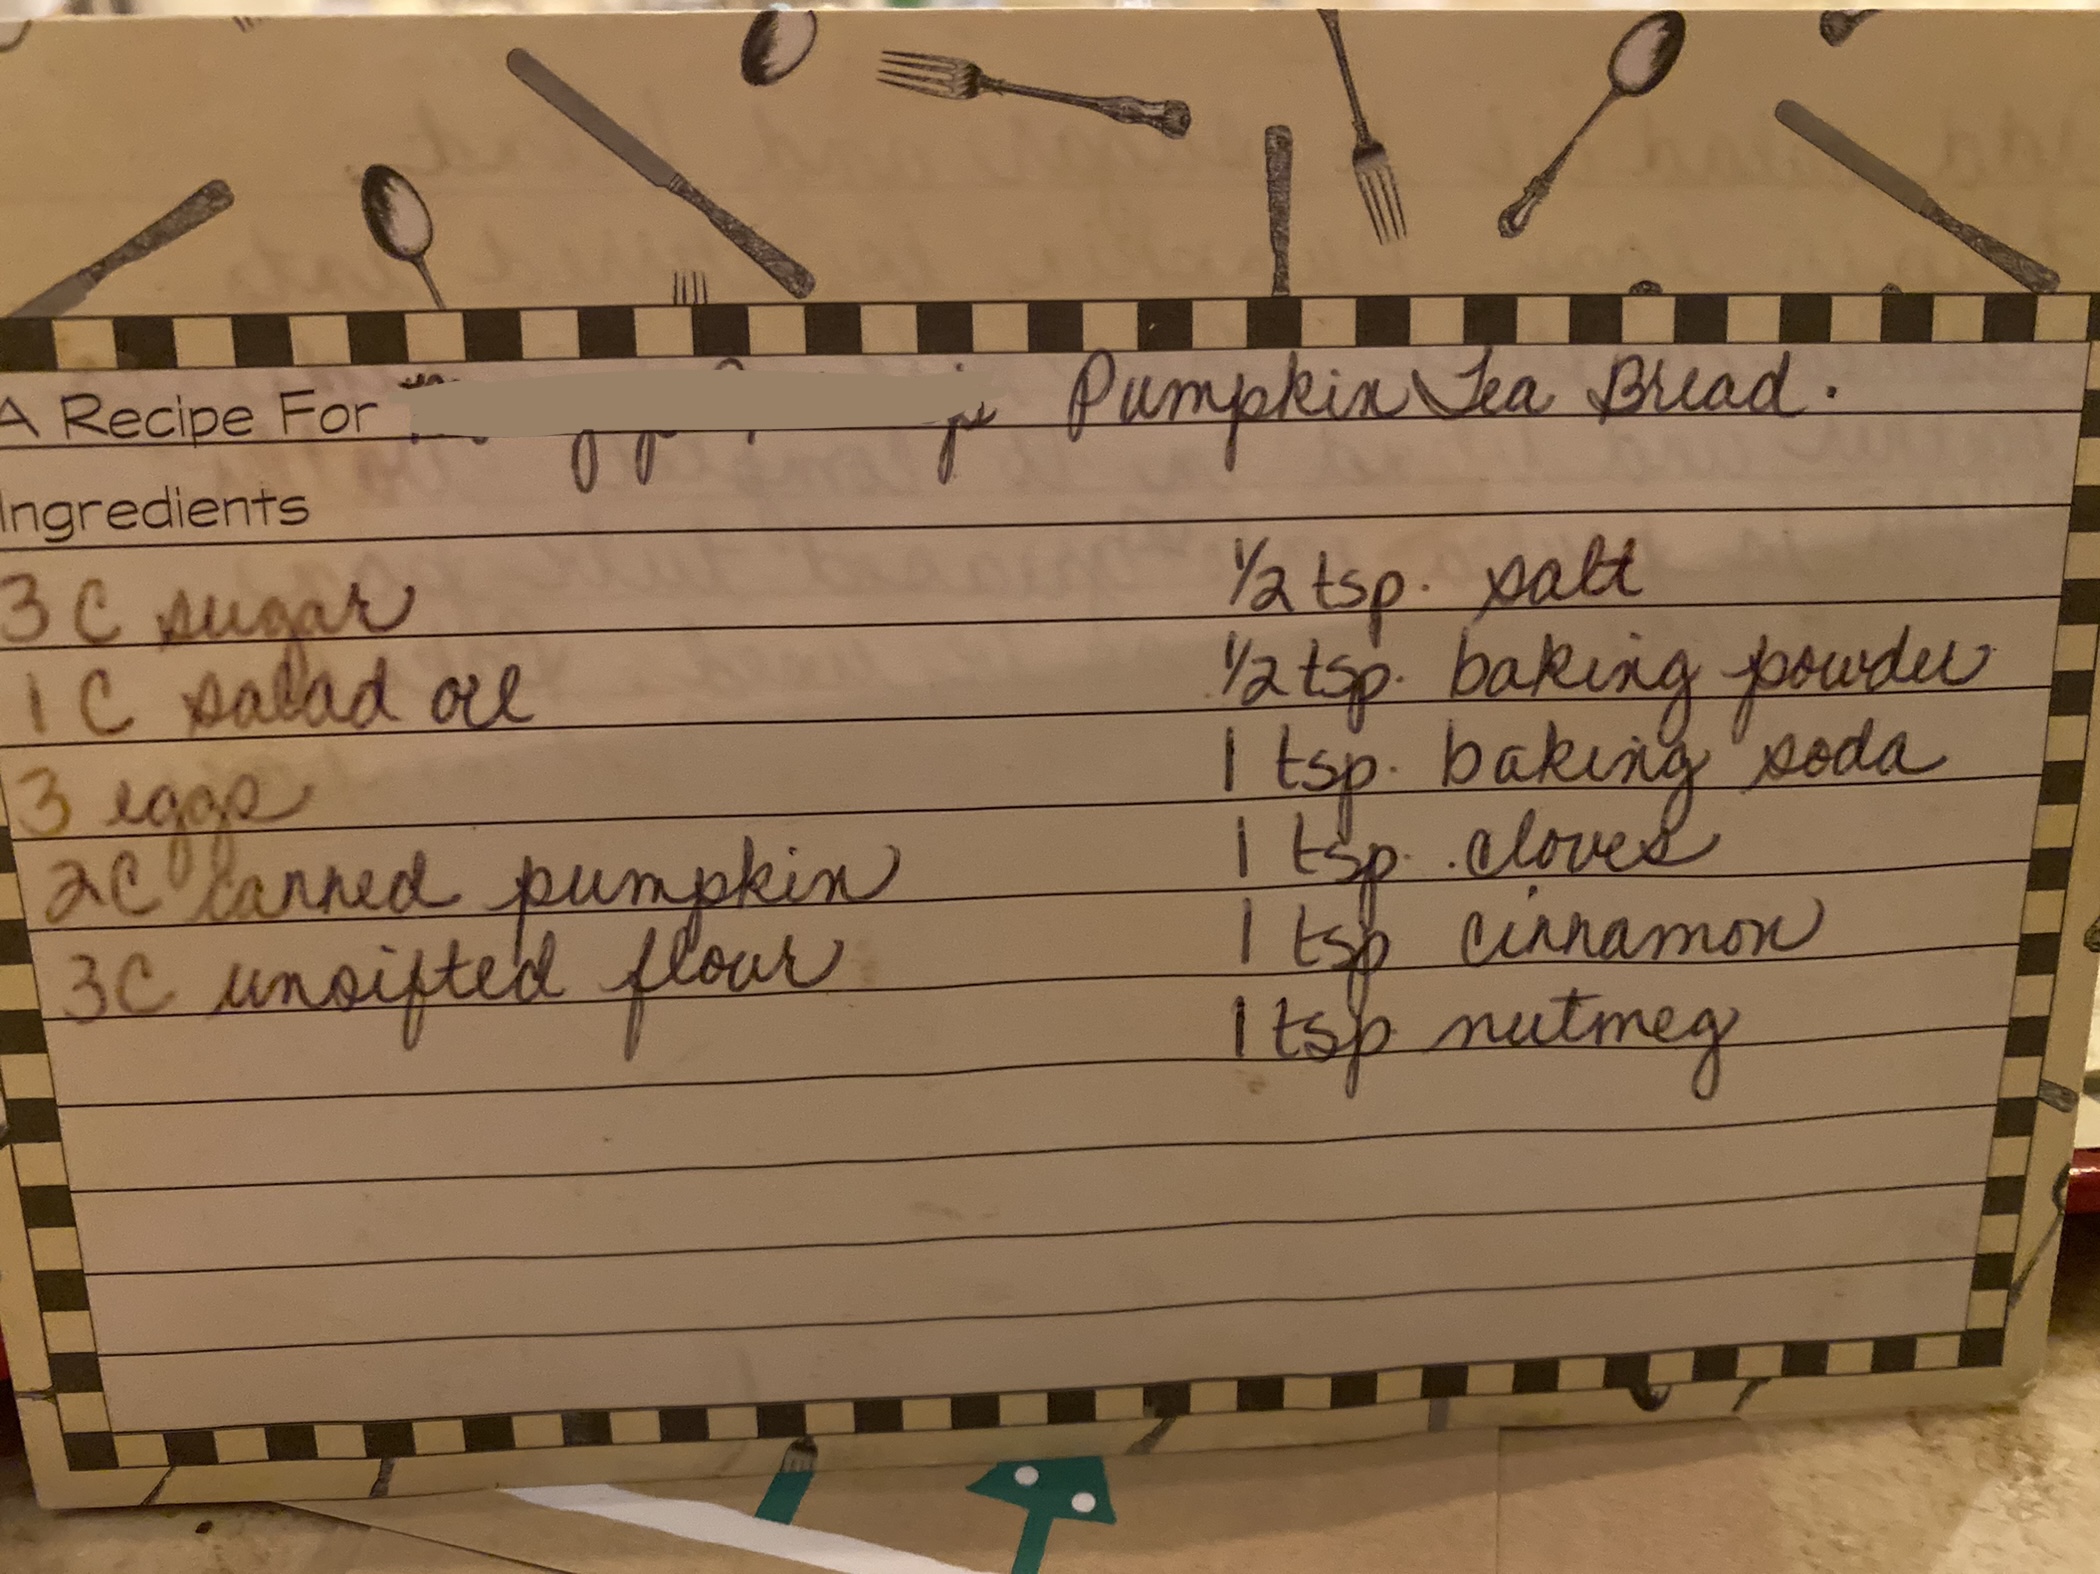 A Recipe For Pumpkin Tea Bread.
Ingredients
3 C sugar
1 C salad oil
3 eggs
2C canned pumpkin
3C unsifted flour
1/2 tsp. salt
1/2 tsp. baking powder
1 tsp. baking soda
1 tsp. cloves
1 tsp cinnamon
1 tsp nutmeg